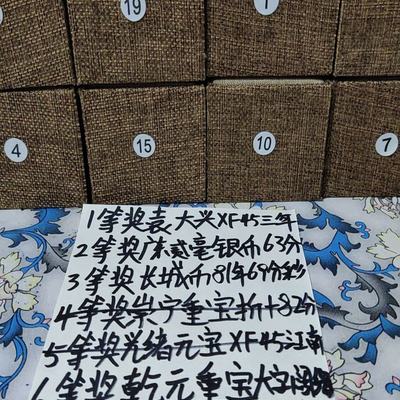 19
1
4
15
10
7
1等奖袁大头XF45三年
2等奖广东贰毫银币63分
3等奖长城币81年69分
4等奖崇宁重宝折十82分
5等奖光绪元宝XF45江南
6等奖乾元重宝大字